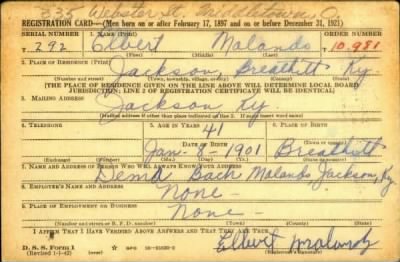 335 Webster Middletown O
REGISTRATION CARD—(Men born on or after February 17, 1897 and on or before December 31, 1921)
SERIAL NUMBER 1. NAME (Print) ORDER NUMBER
T 292 Elbert Malands T 10,981
(First) (Middle) (Last)
2. PLACE OF RESIDENCE (Print)
Jackson, Breathitt Ky.
(Number and street) (Town, township, village, or city) (County) (State)
[THE PLACE OF RESIDENCE GIVEN ON THE LINE ABOVE WILL DETERMINE LOCAL BOARD
JURISDICTION; LINE 2 OF REGISTRATION CERTIFICATE WILL BE IDENTICAL]
3. MAILING ADDRESS
Jackson Ky.
[Mailing address if other than place indicated on line 2. If same insert word same]
4. TELEPHONE 5. AGE IN YEARS 6. PLACE OF BIRTH
41
DATE OF BIRTH (Town or county)
Jan- 8- 1901 Breathitt
(Exchange) (Number) (Mo.) (Day) (Yr.) (State or country)
7. NAME AND ADDRESS OF PERSON WHO WILL ALWAYS KNOW YOUR ADDRESS
Bach Malands Jackson, Ky
8. EMPLOYER'S NAME AND ADDRESS
None-
9. PLACE OF EMPLOYMENT OR BUSINESS
None-
(Number and street or R. F. D. number) (Town) (County) (State)
I AFFIRM THAT I HAVE VERIFIED ABOVE ANSWERS AND THAT THEY ARE TRUE.
D. S. S. Form 1
(Revised 1-1-42) GPO Elbert Malands